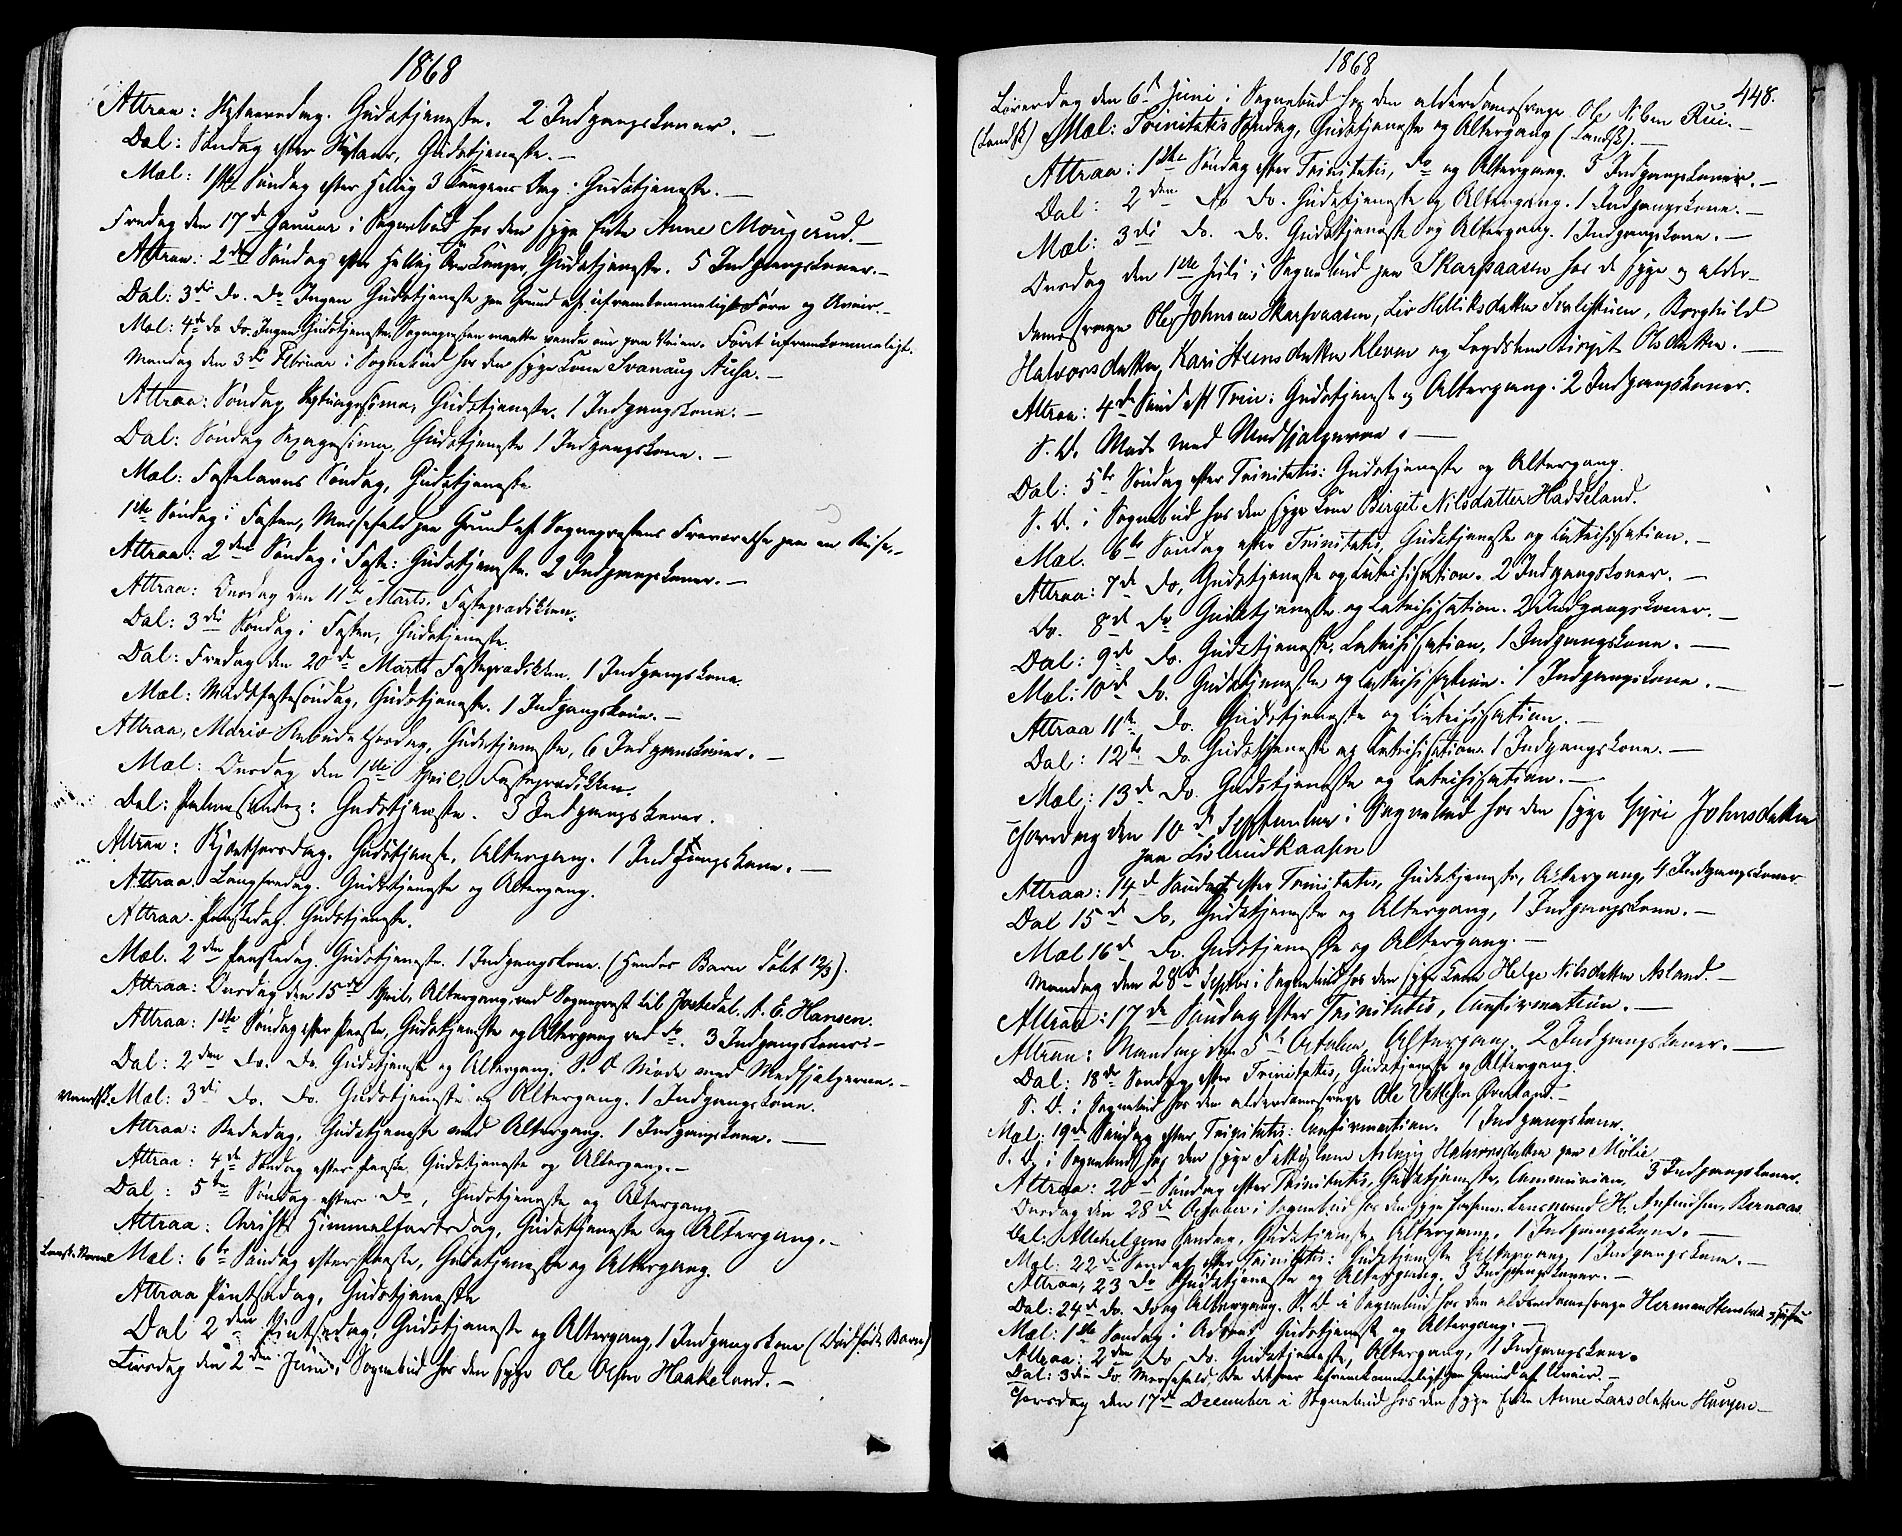 1868
Attraa: Nytaarsdag. Gudstjeneste. 2 Indgangskoner. —
Dal: Søndag efter Nytaar, Gudstjeneste. —
Mæl: 1ste Søndag efter Hellig 3 Kongers Dag: Gudstjeneste. —
Fredag den 17de Januar i Sognebud hos den syge Enke Anne Mougerud. —
Attraa: 2den Søndag efter Hellig Tre Konger, Gudstjeneste. 5 Indgangskoner. —
Dal: 3die do. do Ingen Gudstjeneste paa Grund af ufremkommeligt Føre og Uveir. —
Mæl: 4de do do. Ingen Gudstjeneste. Sognepresten maatte vende om paa Veien. Føret ufremkommeligt.
Mandag den 3de Februar i Sognebud hos den syge Kone Svanaug
Attraa: Søndag Septuagesima, Gudstjeneste. 1 Indgangskone. —
Dal: Søndag Sexagesima, Gudstjeneste 1 Indgangskone. —
Mæl: Fastelavns Søndag, Gudstjeneste
1ste Søndag i Fasten, Messefald paa Grund af Sogneprestens Fraværelse paa en Reise. —
Attraa: 2den Søndag i Faste: Gudstjeneste. 2 Indgangskoner. —
Attraa: Onsdag den 11te Marts. Fasteprædiken.
Dal: 3die Søndag i Fasten, Gudstjeneste.
Dal: Fredag den 20de Marts Fasteprædiken. 1 Indgangskone.
Mæl: Midtfastesøndag, Gudstjeneste. 1 Indgangskone. —
Attraa, Mariæ Bebudelsesdag, Gudstjeneste, 6 Indgangskoner. —
Mæl: Onsdag den 1ste April, Fasteprædiken.
Dal: Palmesøndag: Gudstjeneste. 3 Indgangskoner.
Attraa: Skjærthorsdag, Gudstjeneste, Altergang. 1 Indgangskone. —
Attraa. Langfredag. Gudstjeneste og Altergang.
Attraa. Paaskedag. Gudstjeneste.
Mæl. 2den Paaskedag. Gudstjeneste. 1 Indgangskone. (Hendes Barn døbt 12/3).
Attraa: Onsdag den 15de April, Altergang ved Sogneprest til Jostedal. A. E. Hansen.
Attraa: 1ste Søndag efter Paaske, Gudstjeneste og Altergang ved do. 3 Indgangskoner. —
Dal: 2den do. do. Gudstjeneste og Altergang. S. D Møde med Medhjælperne. —
Mæl: 3die do. do. Gudstjeneste og Altergang. 1 Indgangskone.
Attraa: Bededag, Gudstjeneste med Altergang. 1 Indgangskone. —
Attraa: 4de Søndag efter Paaske, Gudstjeneste og Altergang. —
Dal: 5te Søndag efter do, Gudstjeneste og Altergang. —
Attraa: Christi Himmelfartsdag, Gudstjeneste og Altergang. —
Mæl: 6te Søndag efter Paaske, Gudstjeneste og Altergang.
Attraa Pintsedag, Gudstjeneste
Dal 2den Pintsedag, Gudstjeneste og Altergang, 1 Indgangskone (Dødfødt Barn)
Tirsdag den 2den Juni i Sognebud hos den syge Ole Olsen Haakeland. —
1868
448.
Løverdag den 6te Juni i Sognebud hos den alderdomssvage Ole Nilsen Rui. —
Mæl: Trinitatis Søndag, Gudstjeneste og Altergang —
Attraa: 1ste Søndag efter Trinitatis, do og Altergang. 5 Indgangskoner. —
Dal: 2den do do. Gudstjeneste og Altergang. 1 Indgangskone. —
Mæl: 3die do. do. Gudstjeneste og Altergang. 1 Indgangskone. —
Onsdag den 1ste Juli i Sognebud paa Skarpaasen hos de syge og alder-
domssvage Ole Johnsen Skarpaasen, Liv Helliksdatter Borghild
Halvorsdatter, Kari Steensdatter Kleven og Birgit Olsdatter. —
Attraa: 4de Sønd eft Trin: Gudstjeneste og Altergang. 2 Indgangskoner.
S. D. Møde med Medhjælperne. —
Dal: 5te Søndag efter Trinitatis: Gudstjeneste og Altergang.
S. D. i Sognebud hos den syge Kone Birget Nilsdatter Haddeland.
Mæl. 6te Søndag efter Trinitatis, Gudstjeneste og Catechisation. —
Attraa: 7de do, Gudstjeneste og Catechisation. 2 Indgangskoner. —
do. 8de do Gudstjeneste og Catechisation. 2 Indgangskoner. —
Dal: 9de do. Gudstjeneste, Catechisation, 1 Indgangskone. —
Mæl: 10de do. Gudstjeneste og Catechisation. 1 Indgangskone. —
Attraa 11te do. Gudstjeneste og Catechisation. —
Dal: 12te do. Gudstjeneste og Catechisation. 1 Indgangskone. —
Mæl: 13de do. Gudstjeneste og Catechisation. —
Thorsdag den 10de September i Sognebud hos den syge Gyri Johnsdatter
paa Lislerudkaasen
Attraa: 14de Søndag efter Trinitatis, Gudstjeneste, Altergang, 4 Indgangskoner.
Dal 15de do, Gudstjeneste og Altergang, 1 Indgangskone. —
Mæl 16de do. Gudstjeneste og Altergang. —
Mandag den 28de Septbr i Sognebud hos den syge Kone Helge Nilsdatter Asland. —
Attraa: 17de Søndag efter Trinitatis, Confirmation. —
Attraa: Mandag den 5te October, Altergang. 2 Indgangskoner. —
Dal: 18de Søndag efter Trinitatis, Gudstjeneste og Altergang.
S. D. i Sognebud hos den alderdomssvage Ole Vetlesen Øverland. —
Mæl: 19de Søndag efter Trinitatis: Confirmation. 1 Indgangskone.
S. D. i Sognebud hos den syge Aslaug Halvorsdatter paa Mølie.
Attraa: 20de Søndag efter Trinitatis, Gudstjeneste, Communion, 3 Indgangskoner.
Onsdag den 28de October i Sognebud hos den syge Lensmand H. Bernaas.
Dal: Allehelgens Søndag, Gudstjeneste, Altergang, 1 Indgangskone. —
Mæl: 22de Sønd. efter Trinitatis: Gudstjeneste Altergang, 1 Indgangskone. —
Attraa, 23 do Gudstjeneste og Altergang. 3 Indgangskoner. —
Dal: 24de do. do og Altergang. S. D i Sognebud hos den alderdomssvage Herman
Mæl: 1ste Søndag i Advent Gudstjeneste og Altergang. —
Attraa: 2den do do. Gudstjeneste, Altergang, 1 Indgangskone.
Dal: 3die do Messefald, da det var ufremkommeligt paa Grund af Uveir. —
Thorsdag den 17de December i Sognebud hos den syge Enke Anne Larsdatter Haugen —